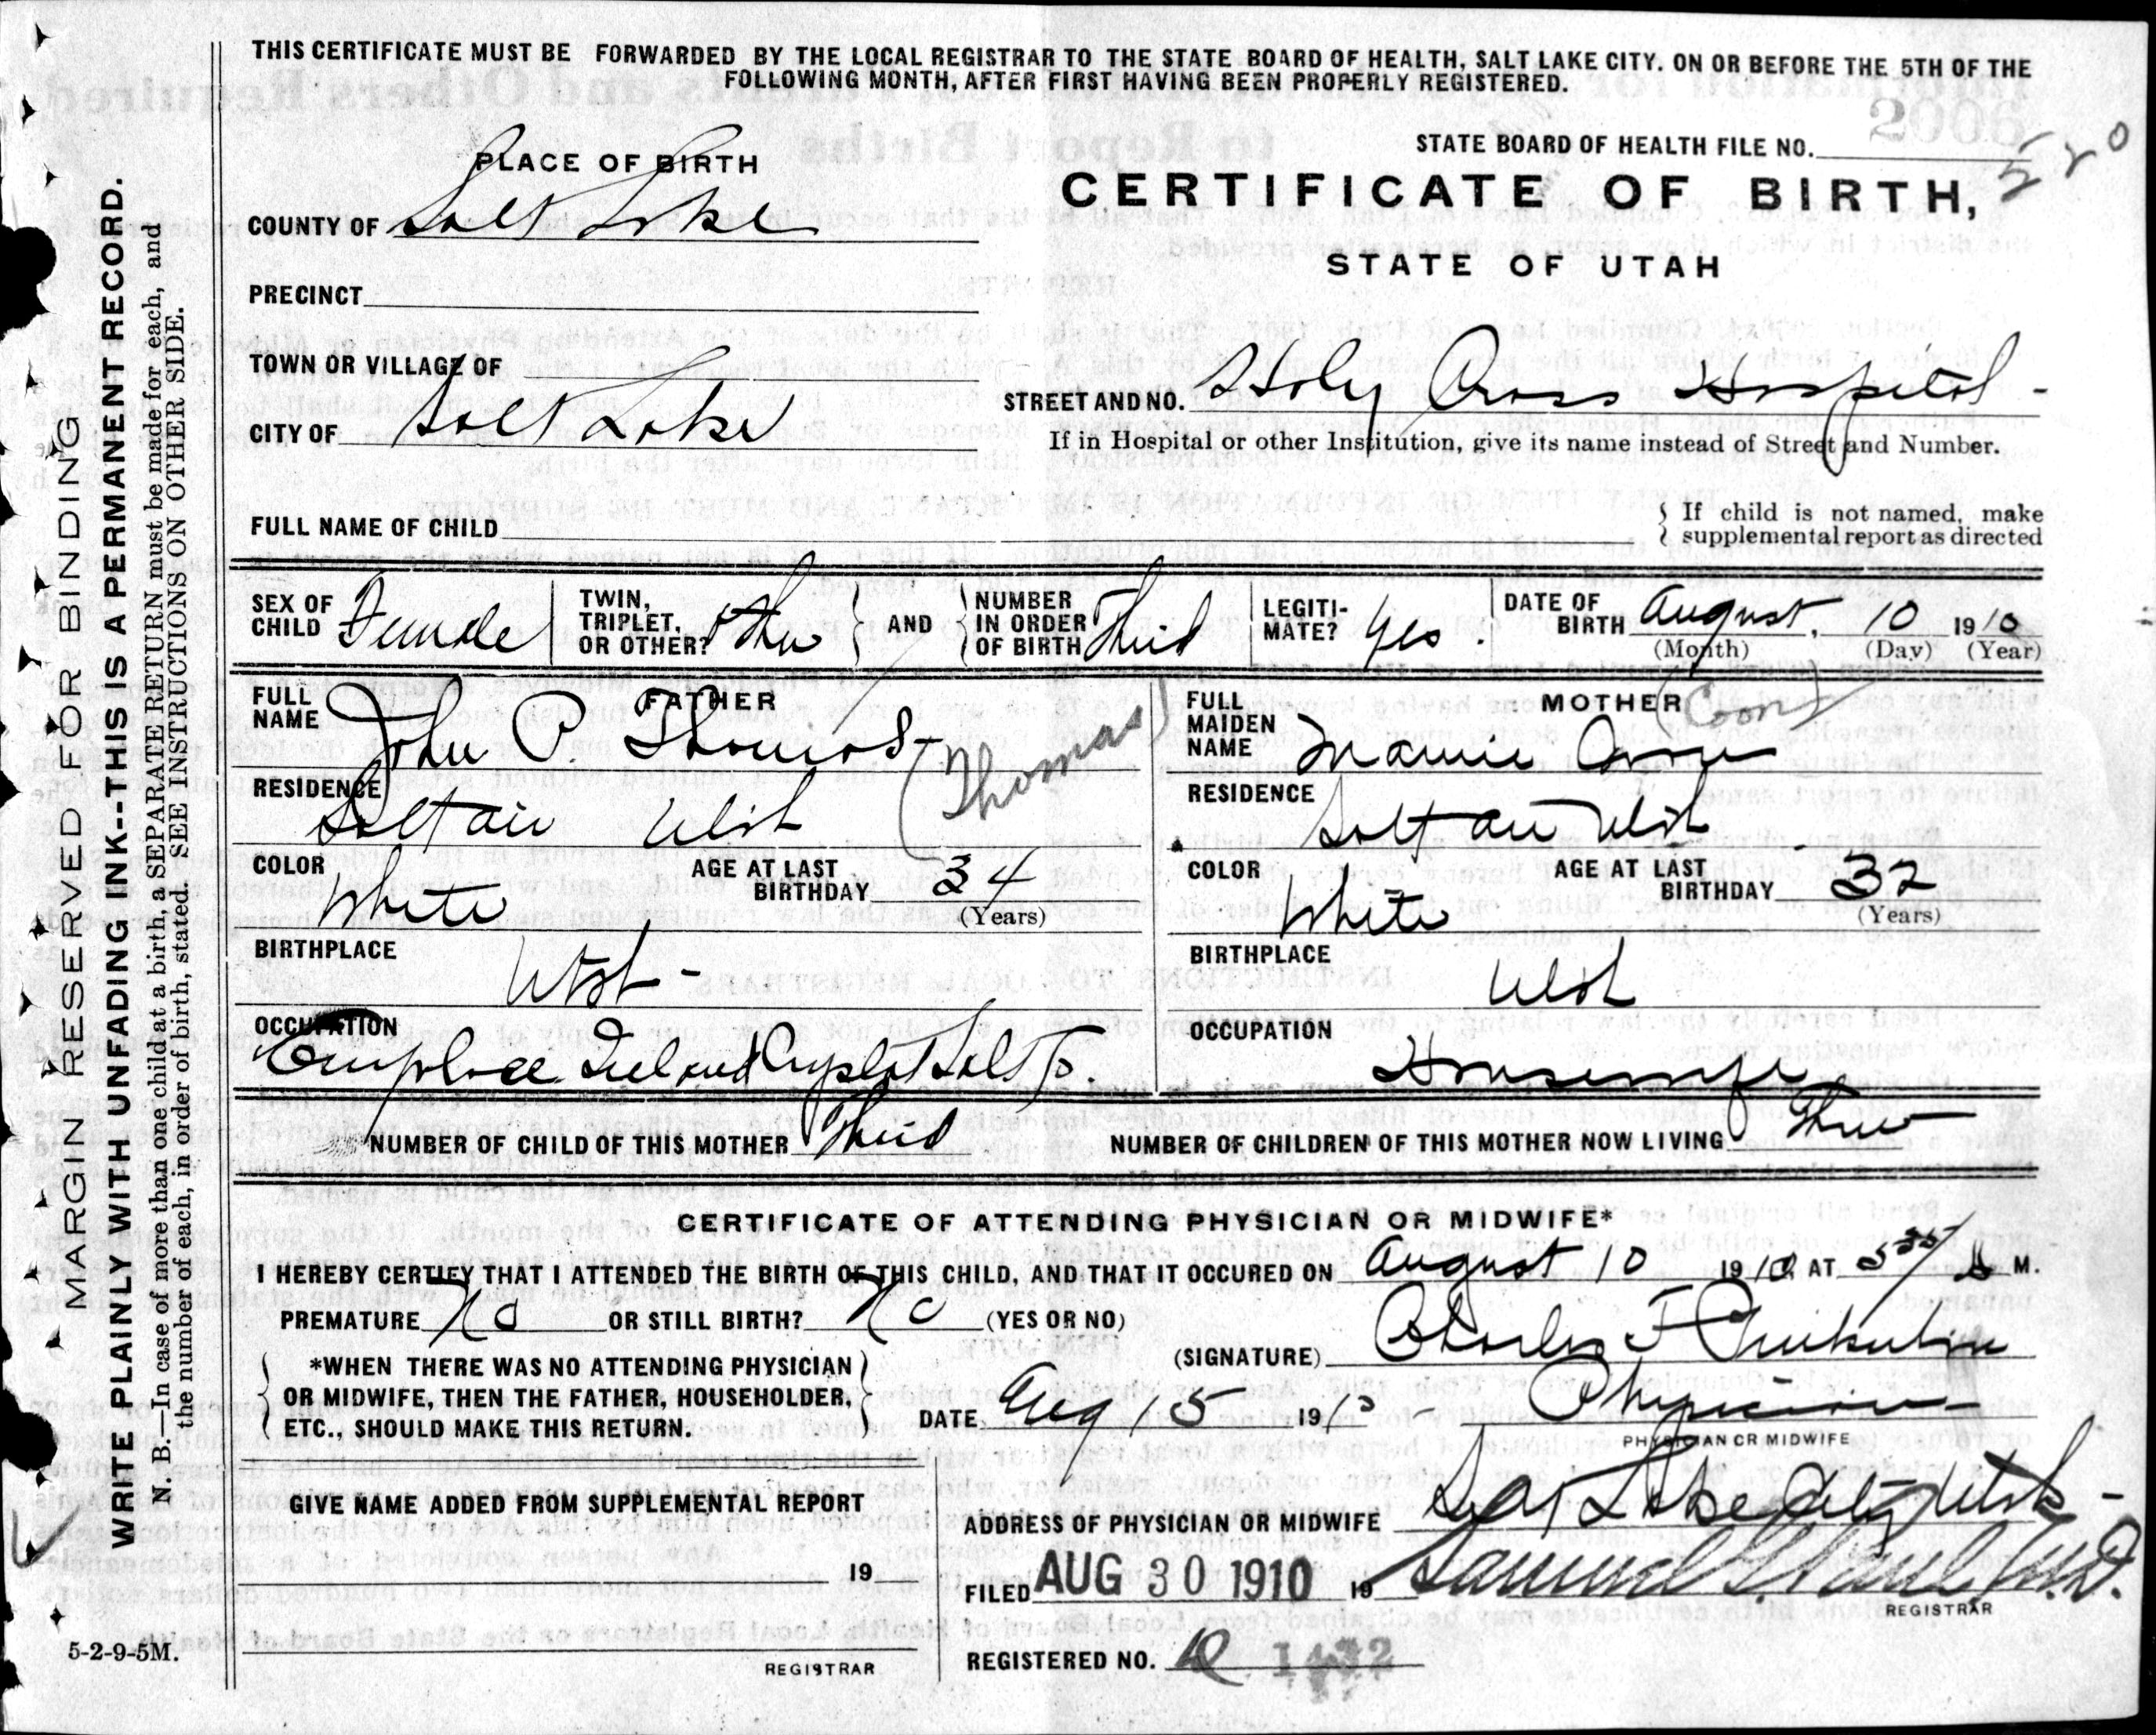 THIS CERTIFICATE MUST BE FORWARDED BY THE LOCAL REGISTRAR TO THE STATE BOARD OF HEALTH, SALT LAKE CITY. ON OR BEFORE THE 5TH OF THE
FOLLOWING MONTH, AFTER FIRST HAVING BEEN PROPERLY REGISTERED.
PLACE OF BIRTH
STATE BOARD OF HEALTH FILE NO. 2006
520
CERTIFICATE OF BIRTH,
COUNTY OF Salt Lake
STATE OF UTAH
PRECINCT
TOWN OR VILLAGE OF
STREET AND NO. Holy Cross Hospital -
CITY OF Salt Lake
If in Hospital or other Institution, give its name instead of Street and Number.
FULL NAME OF CHILD
If child is not named, make
supplemental report as directed
SEX OF CHILD Female
TWIN, TRIPLET, OR OTHER? other
AND
NUMBER IN ORDER OF BIRTH Third
LEGITIMATE? Yes.
DATE OF BIRTH August 10 1910
(Month) (Day) (Year)
FATHER
FULL NAME John P. Thomas
(Thomas)
RESIDENCE Saltair Utah
COLOR White
AGE AT LAST BIRTHDAY 34
(Years)
BIRTHPLACE Utah -
OCCUPATION
Employee Inland Crystal Salt Co.
MOTHER (Coon)
FULL MAIDEN NAME Mamie Coon
RESIDENCE
Saltair Utah
COLOR White
AGE AT LAST BIRTHDAY 32
(Years)
BIRTHPLACE
Utah
OCCUPATION
Housewife
NUMBER OF CHILD OF THIS MOTHER Third
NUMBER OF CHILDREN OF THIS MOTHER NOW LIVING Three
CERTIFICATE OF ATTENDING PHYSICIAN OR MIDWIFE*
I HEREBY CERTIFY THAT I ATTENDED THE BIRTH OF THIS CHILD, AND THAT IT OCCURED ON August 10 1910, AT M.
PREMATURE No OR STILL BIRTH? No (YES OR NO)
*WHEN THERE WAS NO ATTENDING PHYSICIAN
OR MIDWIFE, THEN THE FATHER, HOUSEHOLDER,
ETC., SHOULD MAKE THIS RETURN.
(SIGNATURE) Charles F
DATE Aug 15 1910 - Physician
PHYSICIAN OR MIDWIFE
GIVE NAME ADDED FROM SUPPLEMENTAL REPORT
19
REGISTRAR
ADDRESS OF PHYSICIAN OR MIDWIFE Salt Lake City Utah -
FILED AUG 30 1910 19 Samuel G. Paul M.D.
REGISTRAR
REGISTERED NO. 1432
5-2-9-5M.
MARGIN RESERVED FOR BINDING
WRITE PLAINLY WITH UNFADING INK--THIS IS A PERMANENT RECORD.
N. B.—In case of more than one child at a birth, a SEPARATE RETURN must be made for each, and
the number of each, in order of birth, stated. SEE INSTRUCTIONS ON OTHER SIDE.